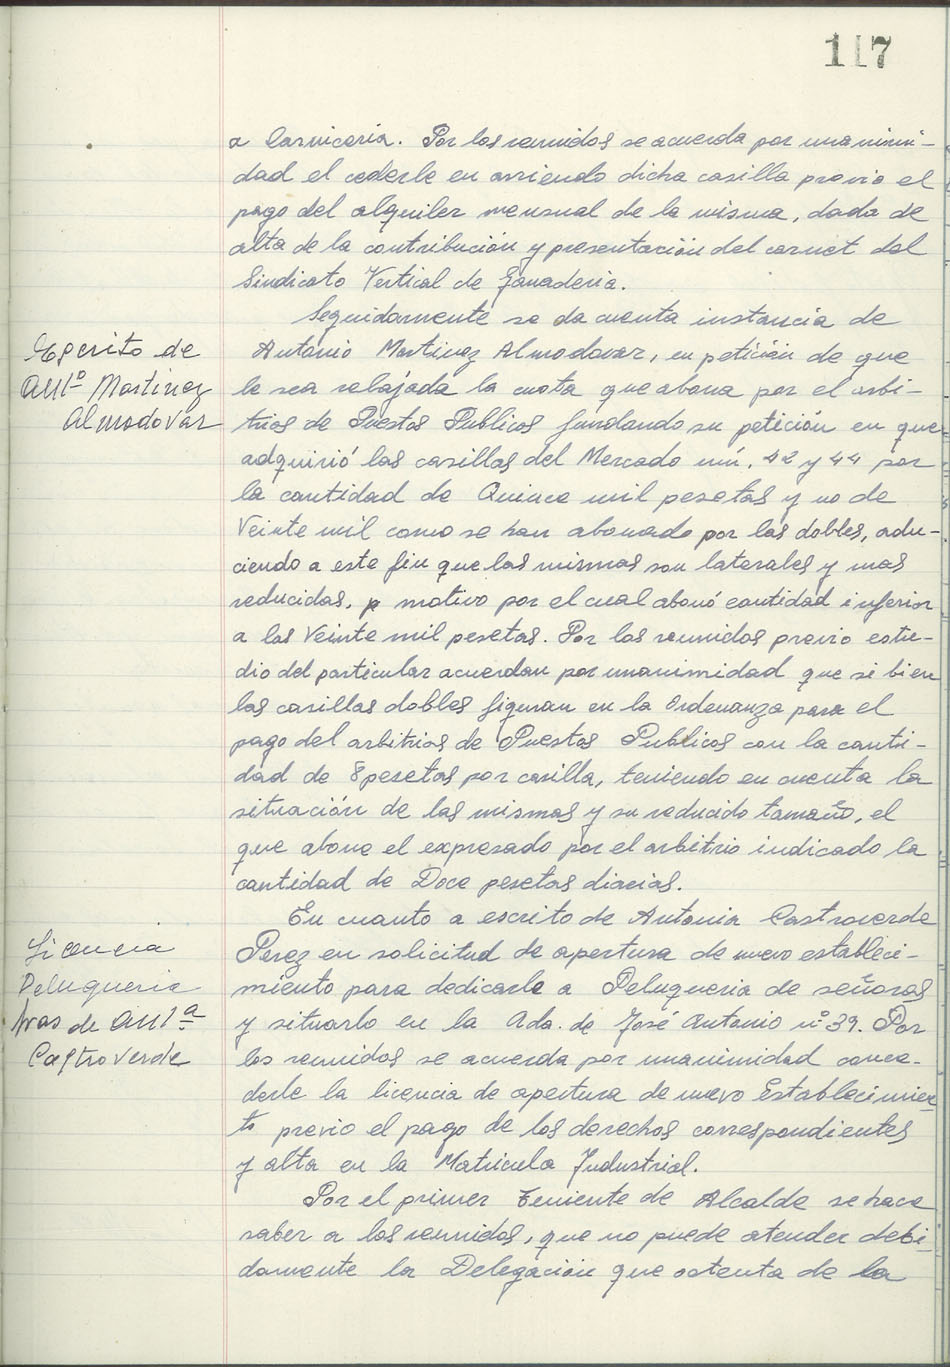 117
a Carniceria. Por los reunidos se acuerda por unanimi-
dad el cederle en arriendo dicha casilla previo el
pago del alquiler mensual de la misma, dada de
alta de la contribución y presentación del carnet del
Sindicato Vertical de Ganaderia.
Seguidamente se da cuenta instancia de
Escrito de
Antº Martinez
Almodovar
Antonio Martinez Almodovar, en petición de que
le sea rebajada la cuota que abona por el arbi-
trios de Puestos Publicos fundando su petición en que
adquirió las casillas del Mercado nú. 42 y 44 por
la cantidad de Quince mil pesetas y no de
Veinte mil como se han abonado por las dobles, adu-
ciendo a este fin que las mismas son laterales y mas
reducidas, p motivo por el cual abonó cantidad inferior
a las Veinte mil pesetas. Por los reunidos previo estu-
dio del particular acuerdan por unanimidad que si bien
las casillas dobles figuran en la Ordenanza para el
pago del arbitrios de Puestos Publicos con la canti-
dad de 8 pesetas por casilla, teniendo en cuenta la
situación de las mismas y su reducido tamaño, el
que abone el expresado por el arbitrio indicado la
cantidad de Doce pesetas diarias.
En cuanto a escrito de Antonia Castroverde
Licencia
Peluqueria
tras de Antª
Castroverde
Perez en solicitud de apertura de nuevo estableci-
miento para dedicarle a Peluqueria de señoras
y situarlo en la Ada. de José Antonio nº 39. Por
los reunidos se acuerda por unanimidad conce-
derle la licencia de apertura de nuevo Establecimien
to previo el pago de los derechos correspondientes
y alta en la Matricula Industrial.
Por el primer Teniente de Alcalde se hace
saber a los reunidos, que no puede atender debi-
damente la Delegación que ostenta de la